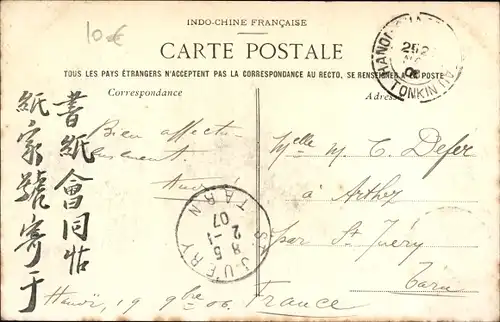 10€
INDO-CHINE FRANÇAISE
CARTE POSTALE
TOUS LES PAYS ÉTRANGERS N'ACCEPTENT PAS LA CORRESPONDANCE AU RECTO, SE RENSEIGNER A LA POSTE
Correspondance
Adresse
HANOI
TONKIN
Bien affectu-
eusement.
André
書紙會同帖
紙家號寄于
Hanoï, 19 9bre 06.
Melle M. C. Defer
à Arthez
par St Juéry
Tarn
France
ST JUERY
TARN
8 5-1
07